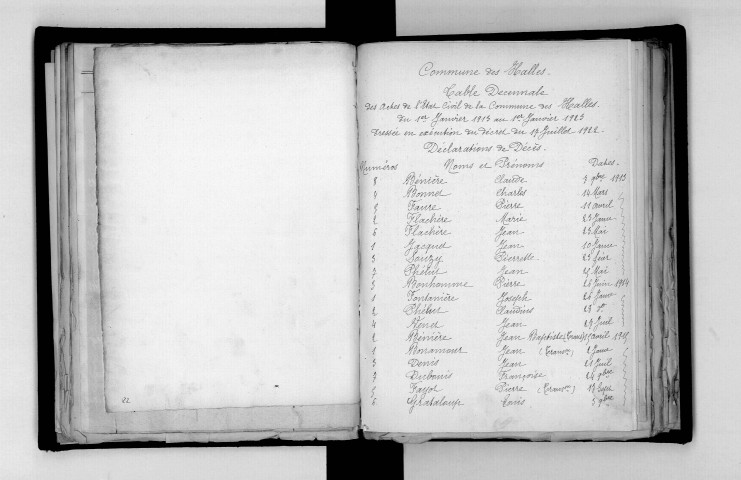 Commune des Halles.
Table Décennale
des Actes de l'État Civil de la Commune des Halles.
du 1er Janvier 1913 au 1er Janvier 1923
Dressée en exécution du décret du 17 Juillet 1922.
Déclarations de Décès.
Numéros Noms et Prénoms Dates.
8 Bénière Claude 9 9bre 1913
4 Bonnet Charles 14 Mars
Faure Pierre 11 avril
2 Flachère Marie 27 Janv
6 Flachère Jean 23 Mai
1 Jacquet Jean 10 Janv
3 Pierrette 23
7 Phélut Jean Mai
5 Bonhomme Pierre Juin 1914
1 Fontanière Joseph 26 Janv
2 Phélut Claudius 23 do
4 Jean 29 Juil
2 Bénière Jean Baptiste (Trans) avril 1915
1 Jean (Trans) 2 Janv
3 Denis Jean 21 Juil
7 Dubouis Françoise 24 9bre
5 Fayot Pierre (Trans) 17 Sept
6 Grataloup 9bre
22